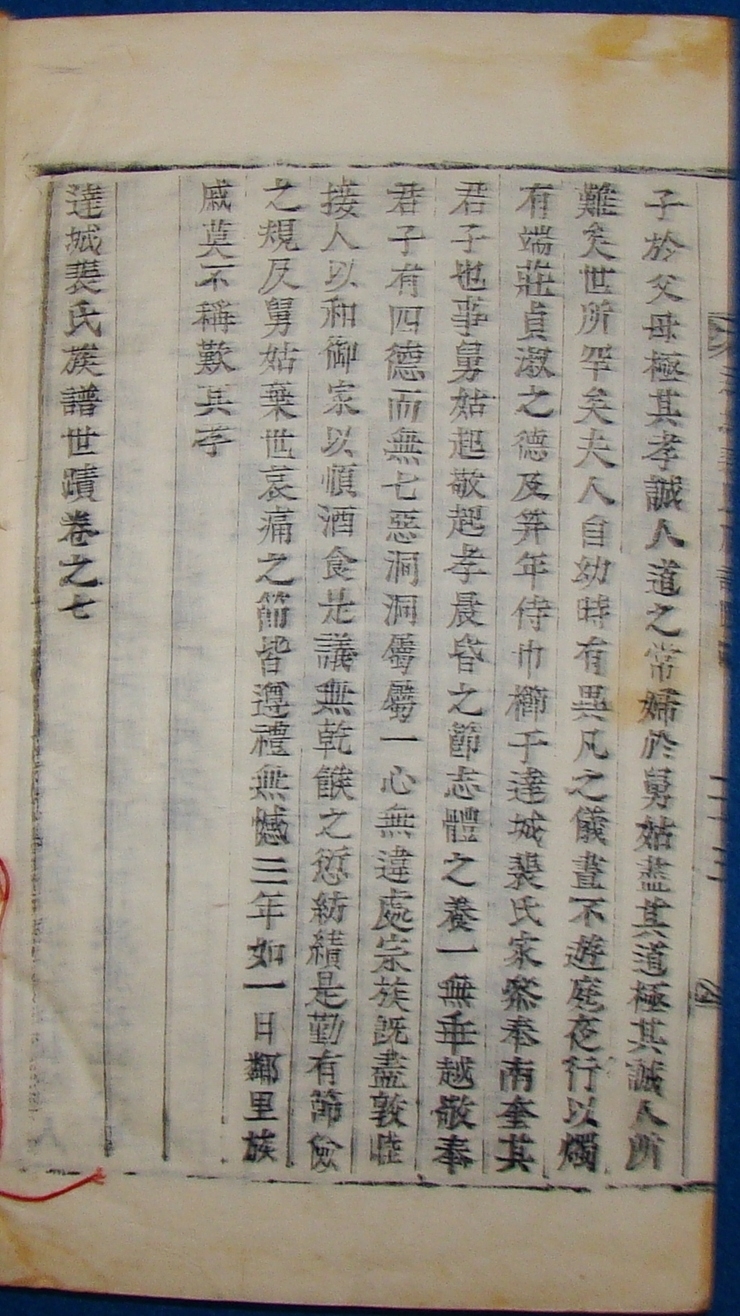 子於父母極其孝誠人道之常婦於舅姑盡其道極其誠人所
難矣世所罕矣夫人自幼時有異凡之儀晝不遊庭夜行以燭
有端莊貞淑之德及笄年侍巾櫛于達城裴氏家粲奉南奎其
君子也事舅姑起敬起孝晨昏之節志體之養一無乖越敬奉
君子有四德而無七惡洞洞屬屬一心無違處宗族旣盡敦睦
接人以和御家以順酒食是議無乾餱之愆紡績是勤有節儉
之規及舅姑棄世哀痛之節皆遵禮無憾三年如一日鄰里族
戚莫不稱歎其孝
達城裴氏族譜世蹟卷之七